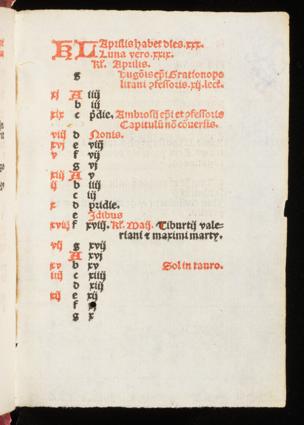 KL Aprilis habet dies .xxx.
Luna vero .xxix.
Kl. Aprilis.
g Hugōis ep̄i Gratianopo
litani ɔfessoris. xij. lect.
xi A iiij
b iij
xix c p̄die. Ambrosij ep̄i et ɔfessoris
Capitulū nō cōuersis.
viij d Nonis.
xvj e viij
v f vij
g vj
xiij A v
ij b iiij
c iij
x d pridie.
e Idibus
xviij f xviij. Kl. Maij. Tiburtij vale-
riani ⁊ maximi marty.
vij g xvij
A xvj
xv b xv Sol in tauro.
iiij c xiiij
d xiij
xij e xij
f xj
g x